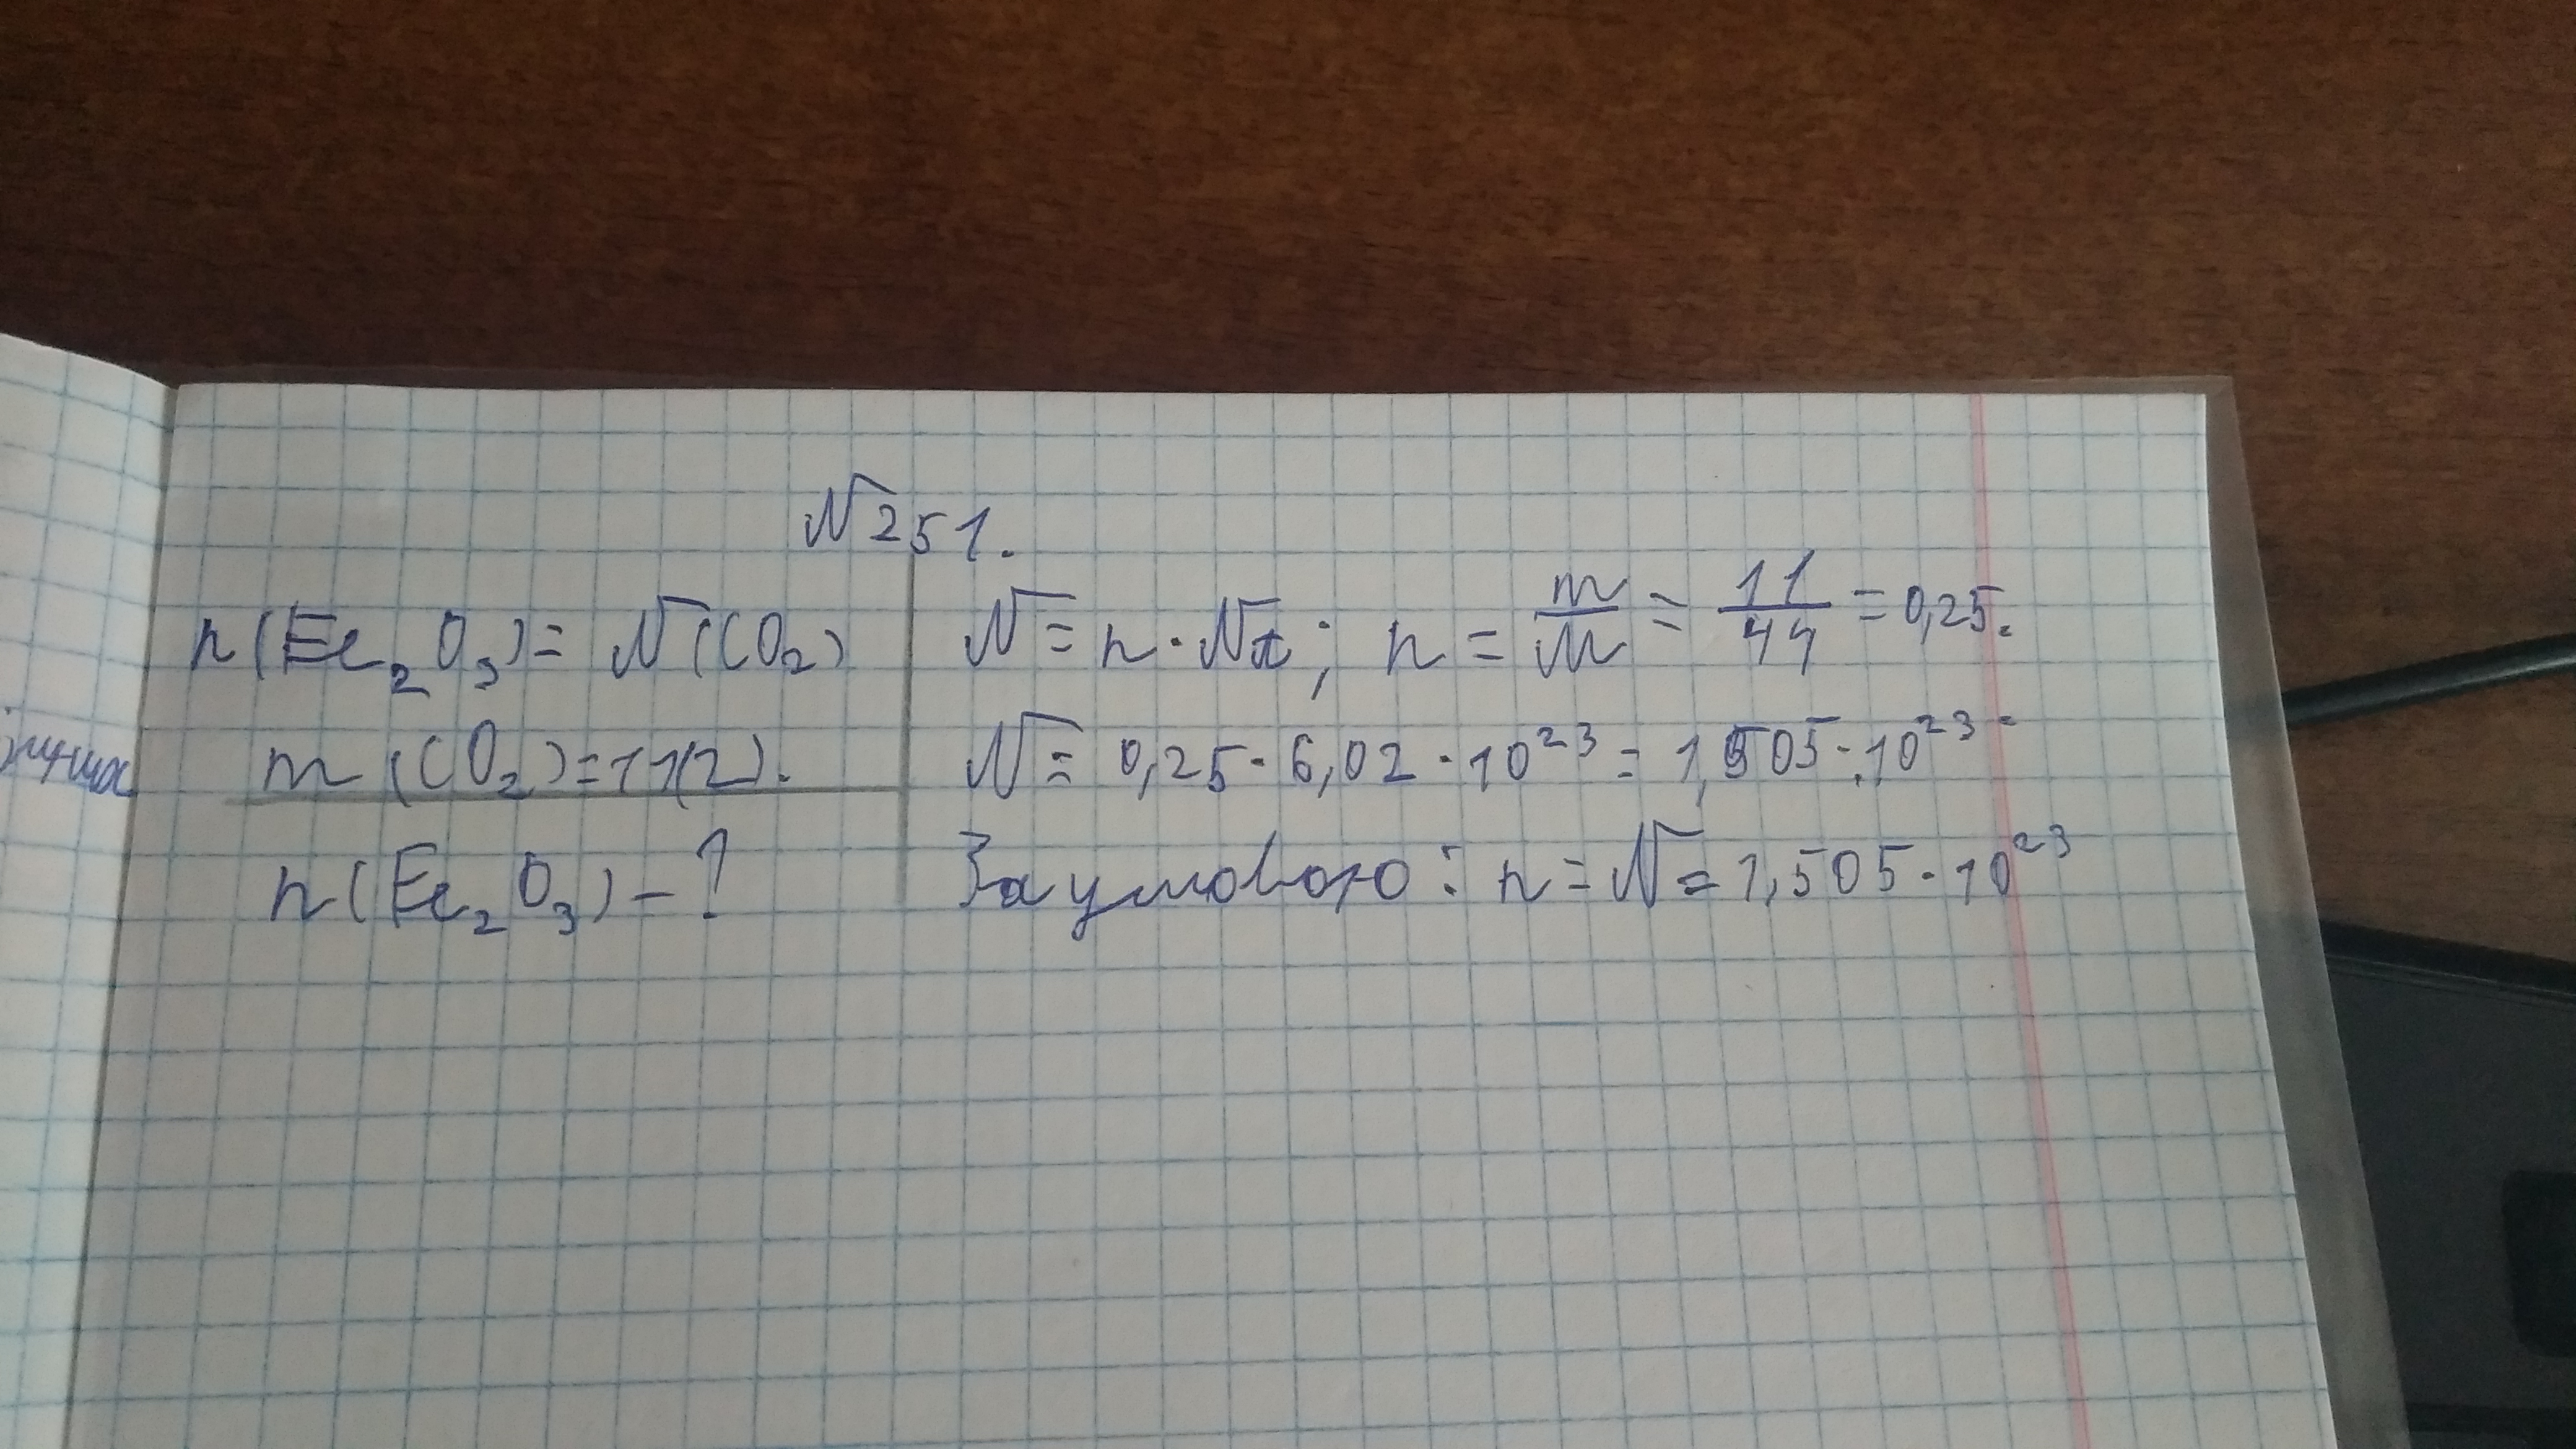 №251.
n(Fe₂O₃)=N(CO₂)
m(CO₂)=11(г).
n(Fe₂O₃)-?
N=n·Nₐ; n=m/M=11/44=0,25.
N=0,25·6,02·10²³=1,505·10²³.
За умовою: n=N=1,505·10²³